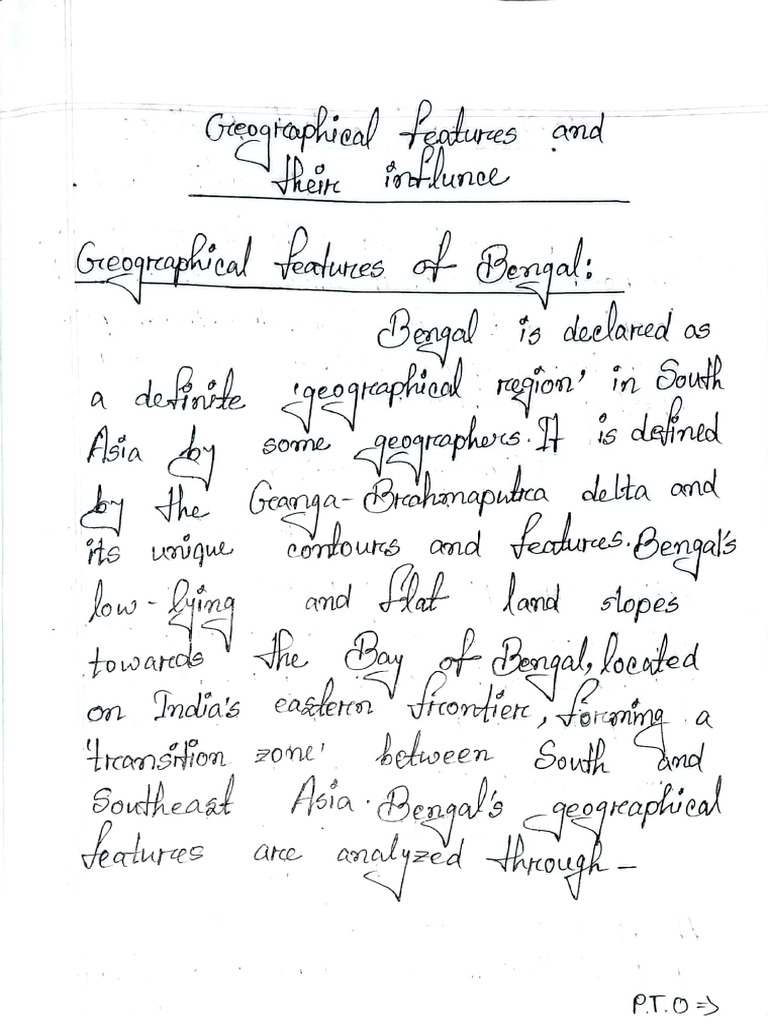 Geographical features and
their influnce
Geographical features of Bengal:
Bengal is declared as
a definite 'geographical region' in South
Asia by some geographers. It is defined
by the Ganga-Brahmaputra delta and
its unique contours and features. Bengal's
low-lying and flat land slopes
towards the Bay of Bengal, located
on India's eastern frontier, forming a
'transition zone' between South and
Southeast Asia. Bengal's geographical
features are analyzed through -
P.T.O ⇒